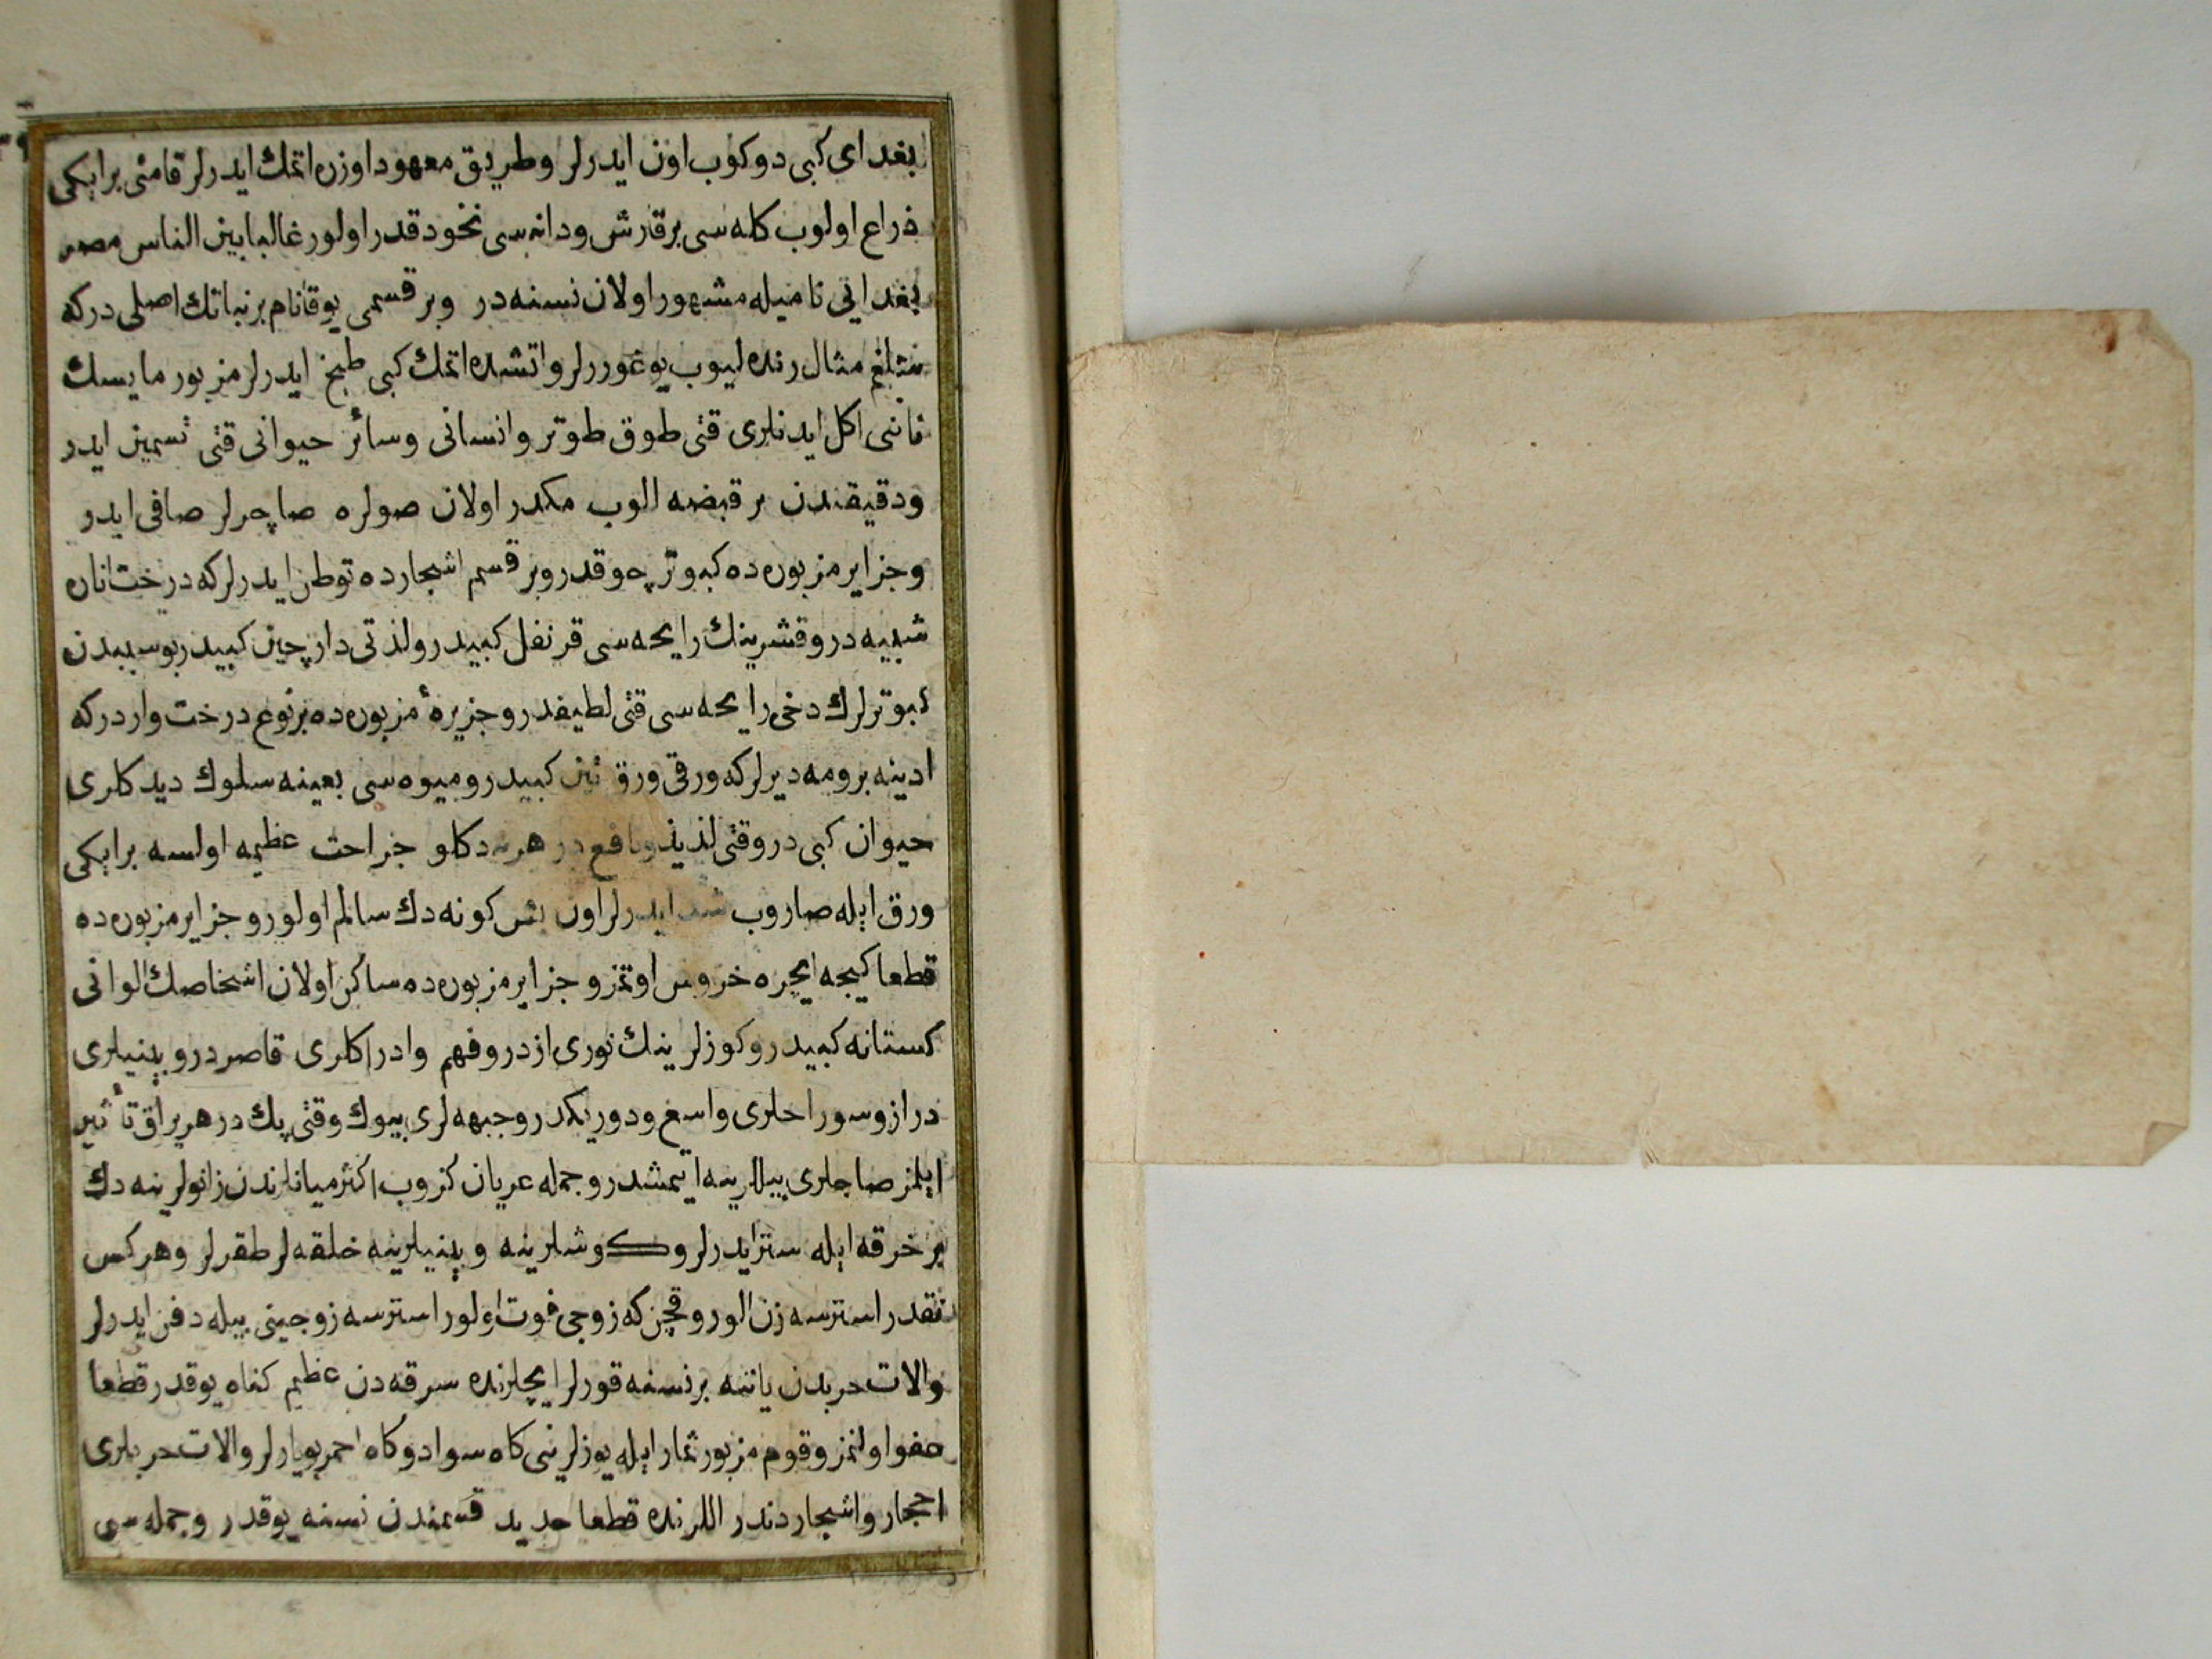 بغدای كبی دوكوب اون ایدرلر وطریق معهود اوزره اتمك ایدرلر قامتی بر ایكی
ذراع اولوب كله سی بر قارش ودانه سی نخود قدر اولور غالبا بین الناس مصر
بغدایی نامیله مشهور اولان نسنه در وبر قسمی یوقا نام بر نباتك اصلی در كه
شلغم مثال رنده لیوب یوغوررلر واتشده اتمك كبی طبخ ایدرلر مزبور مایسك
نانی اكل ایدنلری قتی طوق طوتر وانسانی وسائر حیوانی قتی تسمین ایدر
ودقیقندن بر قبضه الوب مكدر اولان صولره صاچرلر صافی ایدر
وجزایر مزبوره ده كبوتر چوقدر وبر قسم اشجارده توطن ایدرلر كه درخت اناره
شبیه در وقشرینك رایحه سی قرنفل كبیدر ولذتی دارچین كبیدر بو سببدن
كبوترلرك دخی رایحه سی قتی لطیفدر وجزیرهٔ مزبوره ده بر نوع درخت واردر كه
ادینه برومه دیرلر كه ورقی ورق تین كبیدر ومیوه سی بعینه سلوك دیدكلری
حیوان كبی در وقتی لذیذ ونافع در هر نه دكلو جراحت عظیمه اولسه بر ایكی
ورق ایله صاروب شد ایدرلر اون بش كونه دك سالم اولور وجزایر مزبوره ده
قطعا كیجه ایچره خروس اوتمز وجزایر مزبوره ده ساكن اولان اشخاصك الوانی
كستانه كبیدر وكوزلرینك نوری ازدر وفهم وادراكلری قاصردر وبینیلری
دراز وسوراخلری واسع ودوریكدر وجبهه لری بیوك وقتی پك در هر یراق تأثیر
ایلمز صاچلری بیللرینه ایتمشدر وجمله عریان كزوب اكثر میانلرندن زانولرینه دك
بر خرقه ایله ستر ایدرلر وكوشلرینه وبینیلرینه خلقه لر طقرلر وهر كس
نقدر استرسه زن الور وقچن كه زوجی فوت اولور استرسه زوجینی بیله دفن ایدرلر
والات حربدن یاننه بر نسنه قورلر ایچلرنده سرقه دن عظیم كناه یوقدر قطعا
عفو اولنمز وقوم مزبور ثمار ایله یوزلرینی كاه سواد وكاه احمر بویارلر والات حربلری
احجار واشجاردندر اللرنده قطعا حدید قسمندن نسنه یوقدر وجمله سی